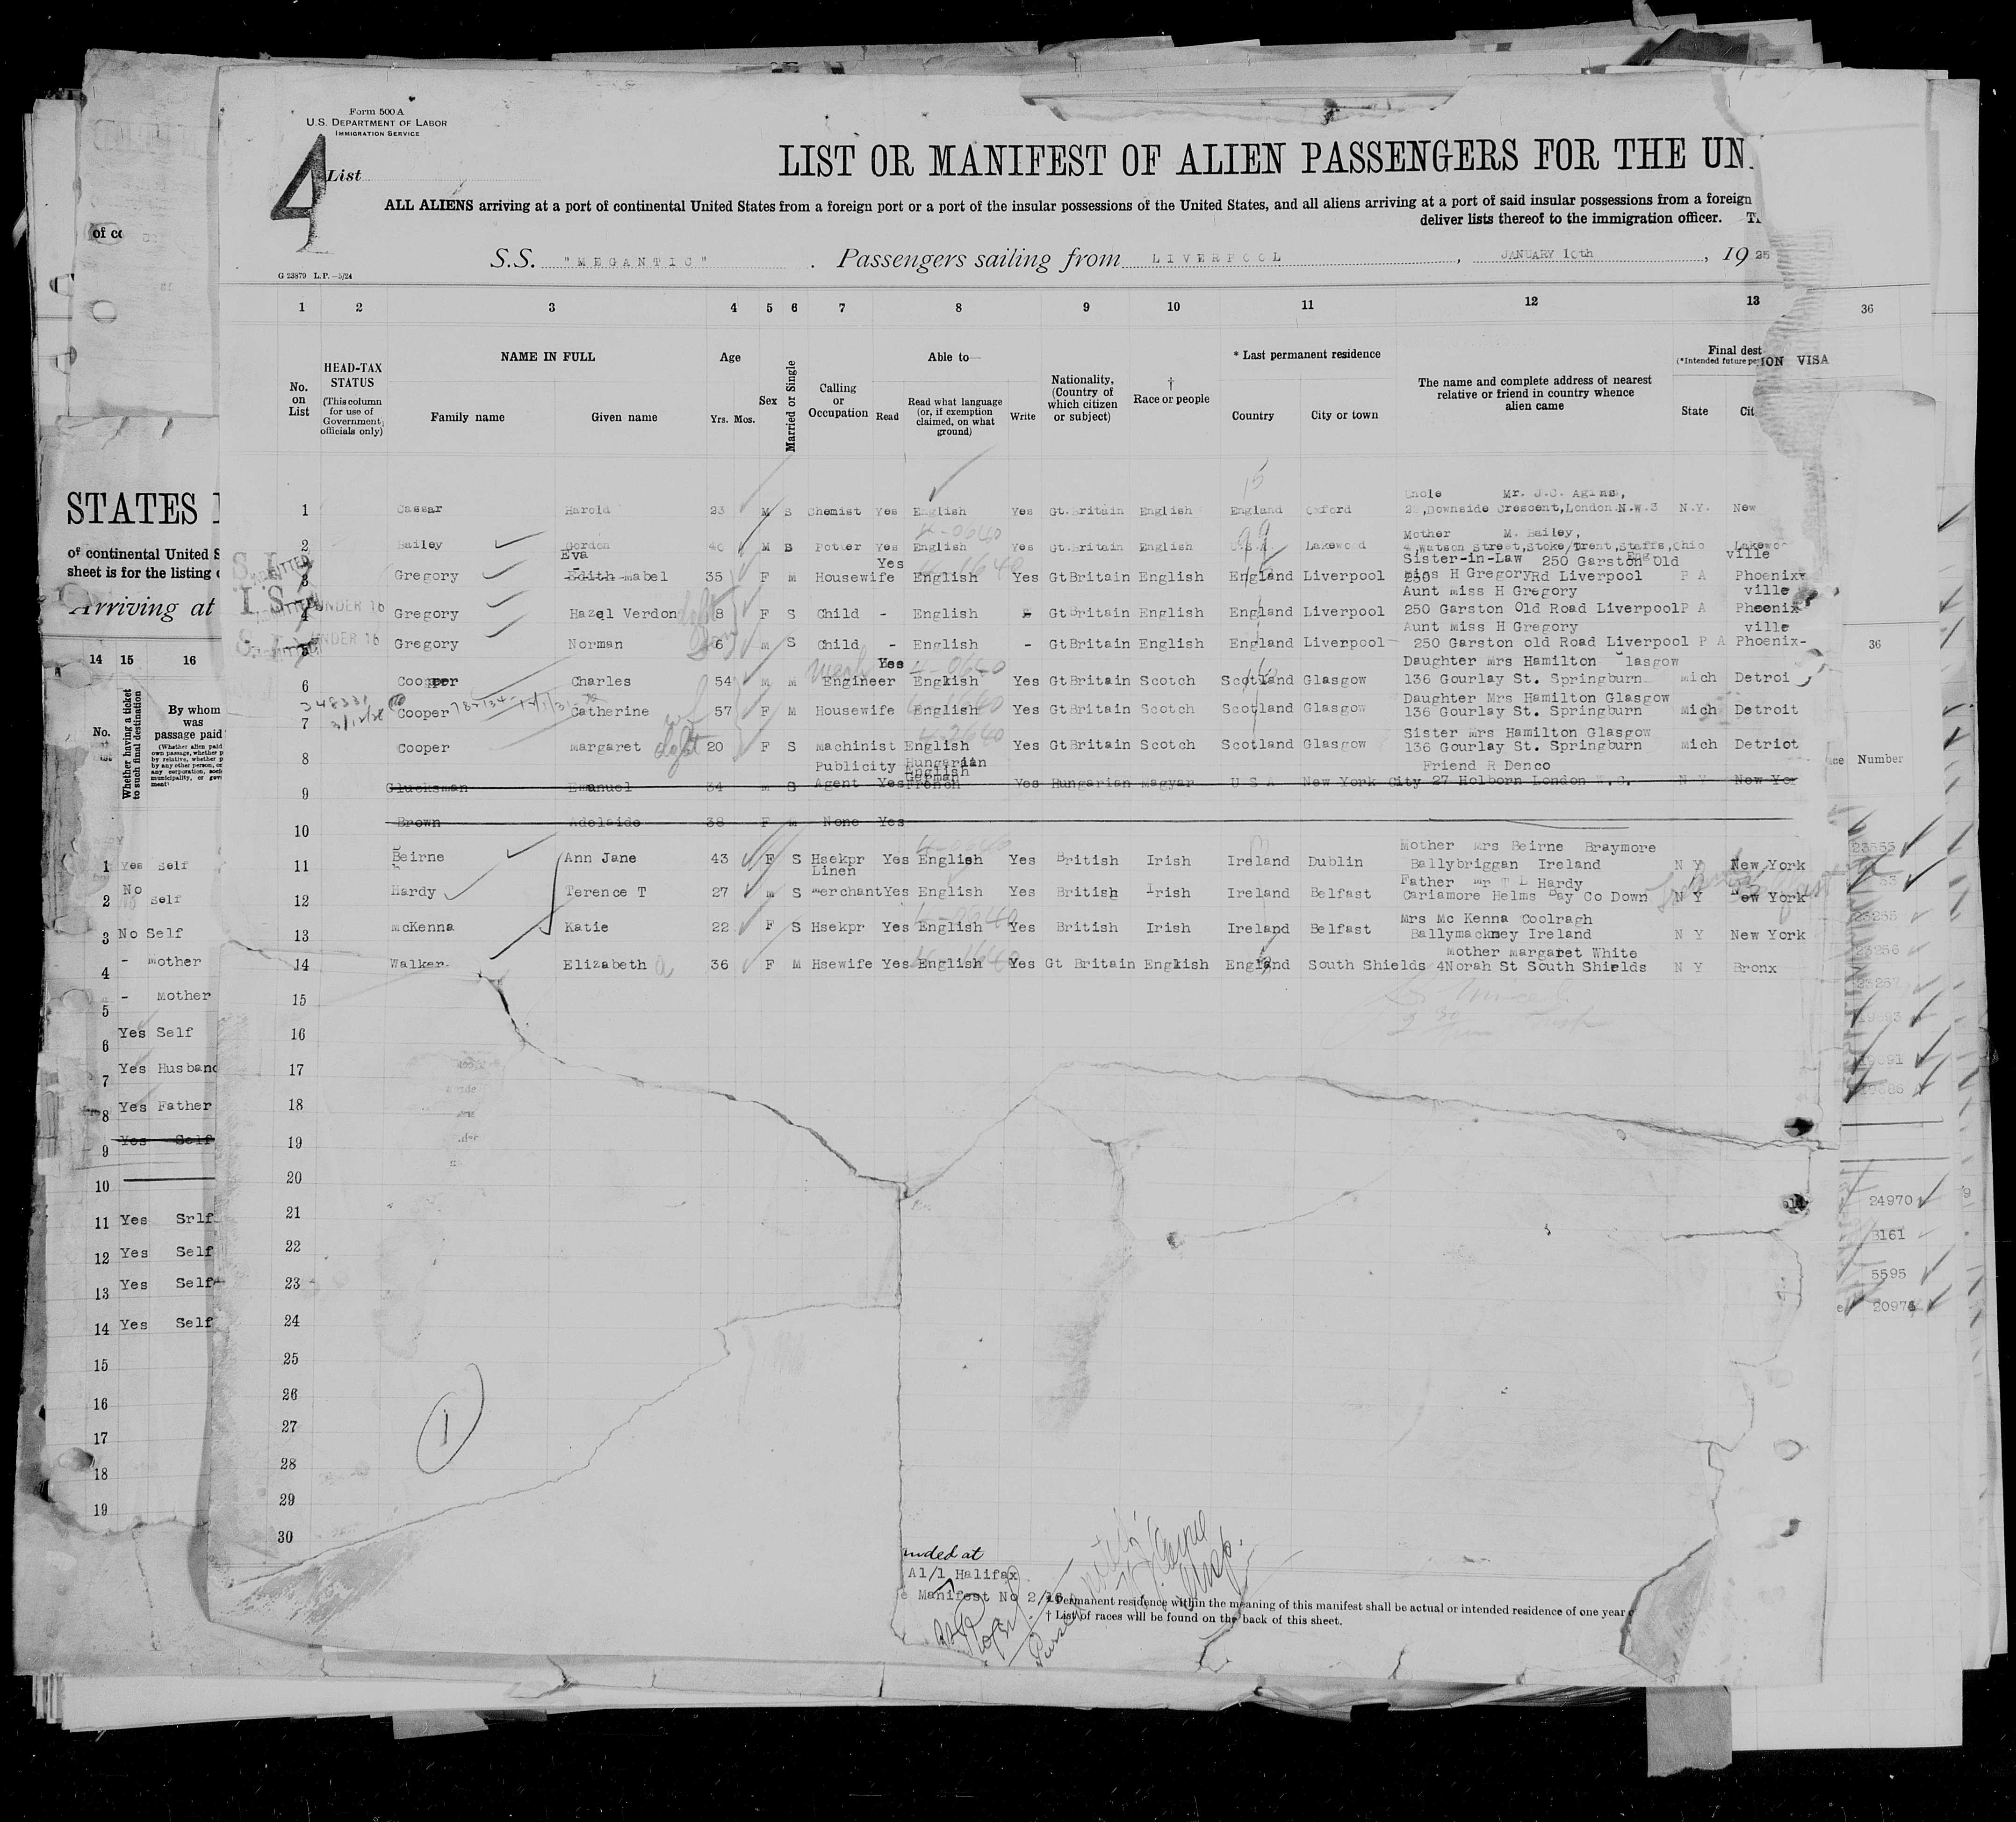 Form 500 A
U.S. DEPARTMENT OF LABOR
IMMIGRATION SERVICE
4
List
LIST OR MANIFEST OF ALIEN PASSENGERS FOR THE UN
ALL ALIENS arriving at a port of continental United States from a foreign port or a port of the insular possessions of the United States, and all aliens arriving at a port of said insular possessions from a foreign
deliver lists thereof to the immigration officer.
G 23879 L.P.—5/24
S.S. "MEGANTIC" . Passengers sailing from LIVERPOOL , JANUARY 10th , 19 25
1 2 3 4 5 6 7 8 9 10 11 12 13 36
No. on List
HEAD-TAX STATUS (This column for use of Government officials only)
NAME IN FULL
Family name
Given name
Age
Yrs. Mos.
Sex
Married or Single
Calling or Occupation
Able to—
Read
Read what language (or, if exemption claimed, on what ground)
Write
Nationality, (Country of which citizen or subject)
† Race or people
* Last permanent residence
Country
City or town
The name and complete address of nearest relative or friend in country whence alien came
Final dest
(*Intended future pe
State
Cit
ION VISA
Uncle Mr. J.C.
1 Cassar Harold 23 M S Chemist Yes English Yes Gt.Britain English England Oxford Downside Crescent,London.N.W.3 N.Y. New
Mother M. Bailey,
2 Bailey Gordon M Potter Yes English Yes Gt.Britain English U.S.A Lakewood 4,Watson Street,Stoke/Trent,Staffs, Ohio Lakewo
Eva Yes Sister-in-Law 250 Garston Old Eng ville
3 Gregory Edith mabel 35 F M Housewife English Yes GtBritain English England Liverpool Miss H Gregory Rd Liverpool P A Phoenix
Aunt miss H Gregory ville
4 Gregory Hazel Verdon 8 F S Child - English GtBritain English England Liverpool 250 Garston Old Road Liverpool P A Phoenix
Aunt Miss H Gregory ville
5 Gregory Norman 6 m S Child - English - GtBritain English England Liverpool 250 Garston old Road Liverpool P A Phoenix-
Yes Daughter Mrs Hamilton lasgow
6 Cooper Charles 54 M M Engineer English Yes GtBritain Scotch Scotland Glasgow 136 Gourlay St. Springburn mich Detroi
Daughter Mrs Hamilton Glasgow
7 Cooper Catherine 57 F M Housewife English Yes GtBritain Scotch Scotland Glasgow 136 Gourlay St. Springburn Mich Detroit
Sister Mrs Hamilton Glasgow
8 Cooper margaret 20 F S machinist English Yes GtBritain Scotch Scotland Glasgow 136 Gourlay St. Springburn mich Detriot
Publicity Hungarian English German Friend R Denco
9 Glucksman Emanuel 34 m S Agent Yes French Yes Hungarian magyar U S A New York City 27 Holborn London W.C. N Y New Yo
10 Brown Adelaide 38 F M None Yes
Mother mrs Beirne Braymore
11 Beirne Ann Jane 43 F S Hsekpr Yes English Yes British Irish Ireland Dublin Ballybriggan Ireland N Y New York
Linen Father mr T L Hardy
12 Hardy Terence T 27 m S merchant Yes English Yes British Irish Ireland Belfast Carlamore Helms Bay Co Down N Y New York
Mrs Mc Kenna Coolragh
13 McKenna Katie 22 F S Hsekpr Yes English Yes British Irish Ireland Belfast Ballymackney Ireland N Y New York
Mother margaret White
14 Walker Elizabeth 36 F M Hsewife Yes English Yes Gt Britain English England South Shields 4Norah St South Shields N Y Bronx
15
16
17
18
19
20
21
22
23
24
25
26
27
28
29
30
1
nded at
A1/1 Halifax
Manifest No 2/16
* Permanent residence within the meaning of this manifest shall be actual or intended residence of one year
† List of races will be found on the back of this sheet.
of co
STATES
of continental United S
sheet is for the listing
Arriving at
14 15 16
No.
Whether having a ticket to such final destination
By whom was passage paid
1 Yes Self
2 No Self
3 No Self
4 - mother
5 - Mother
6 Yes Self
7 Yes Husband
8 Yes Father
9 Yes Self
10
11 Yes Srlf
12 Yes Self
13 Yes Self
14 Yes Self
15
16
17
18
19
36
Number
23255
23256
24970
3161
5595
20974